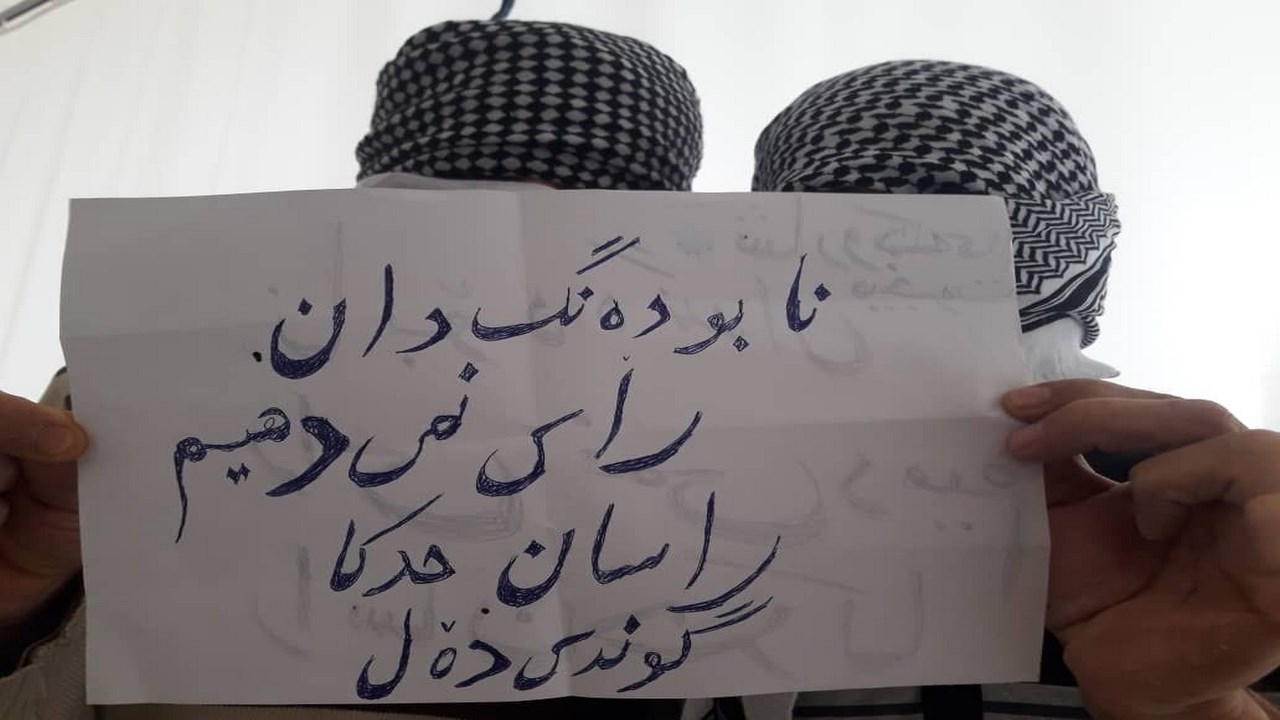 نا بو دەنگ دان
رأی نمی دهیم
راسان حدکا
گوندی دۆل